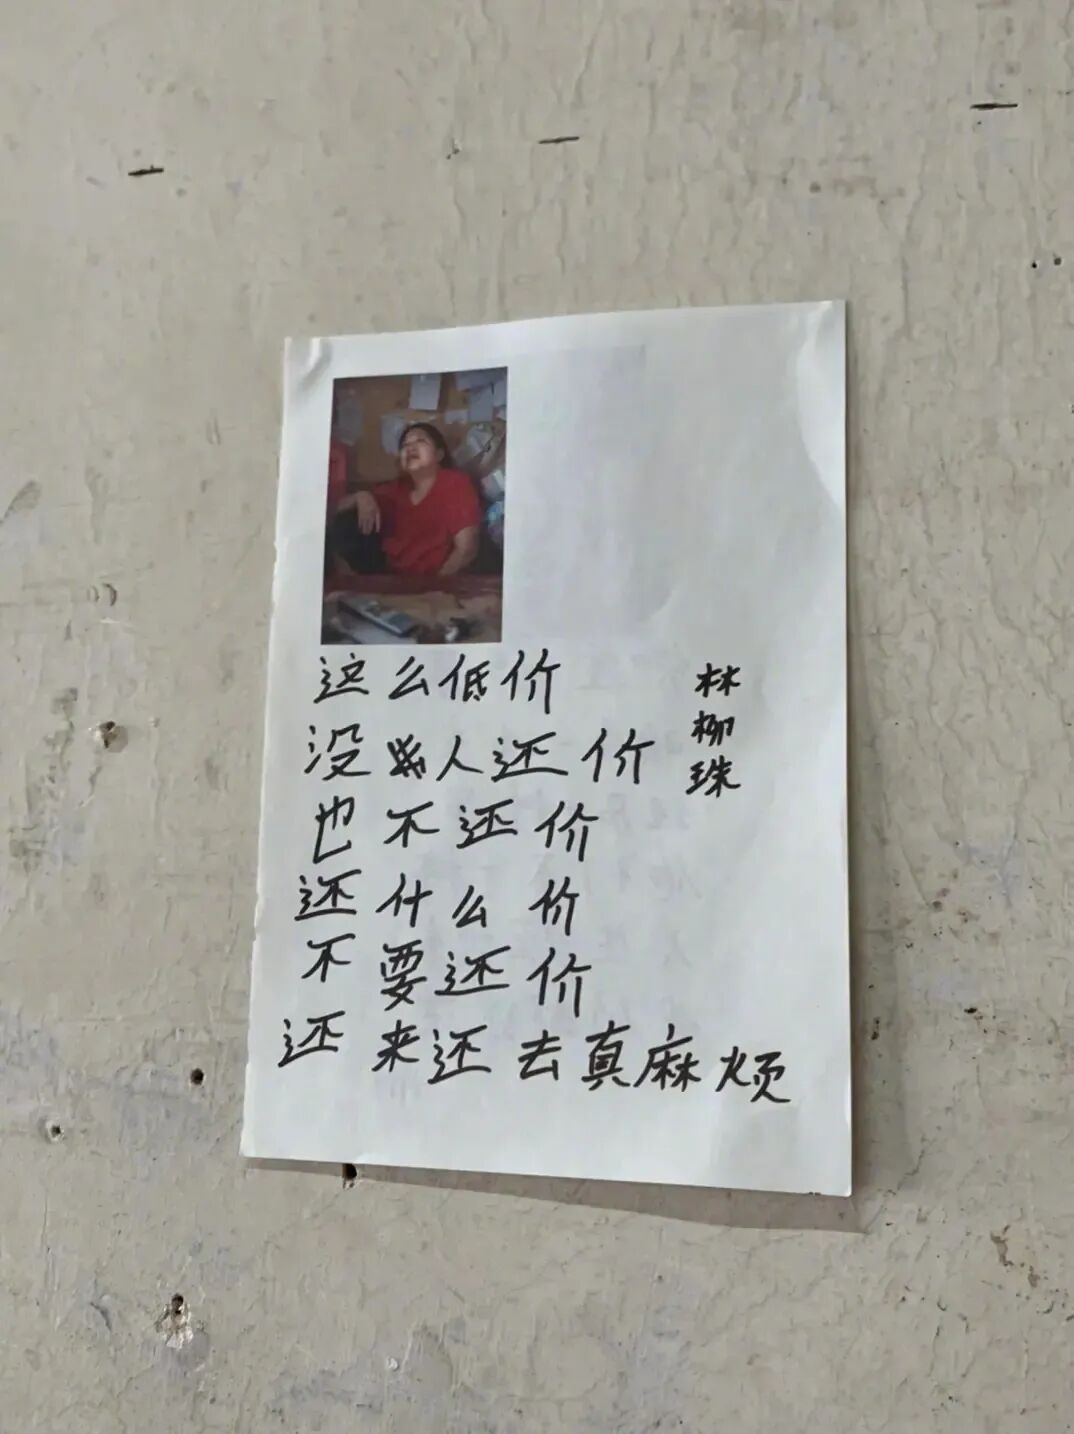 这么低价
没人还价
也不还价
还什么价
不要还价
还来还去真麻烦
林柳珠